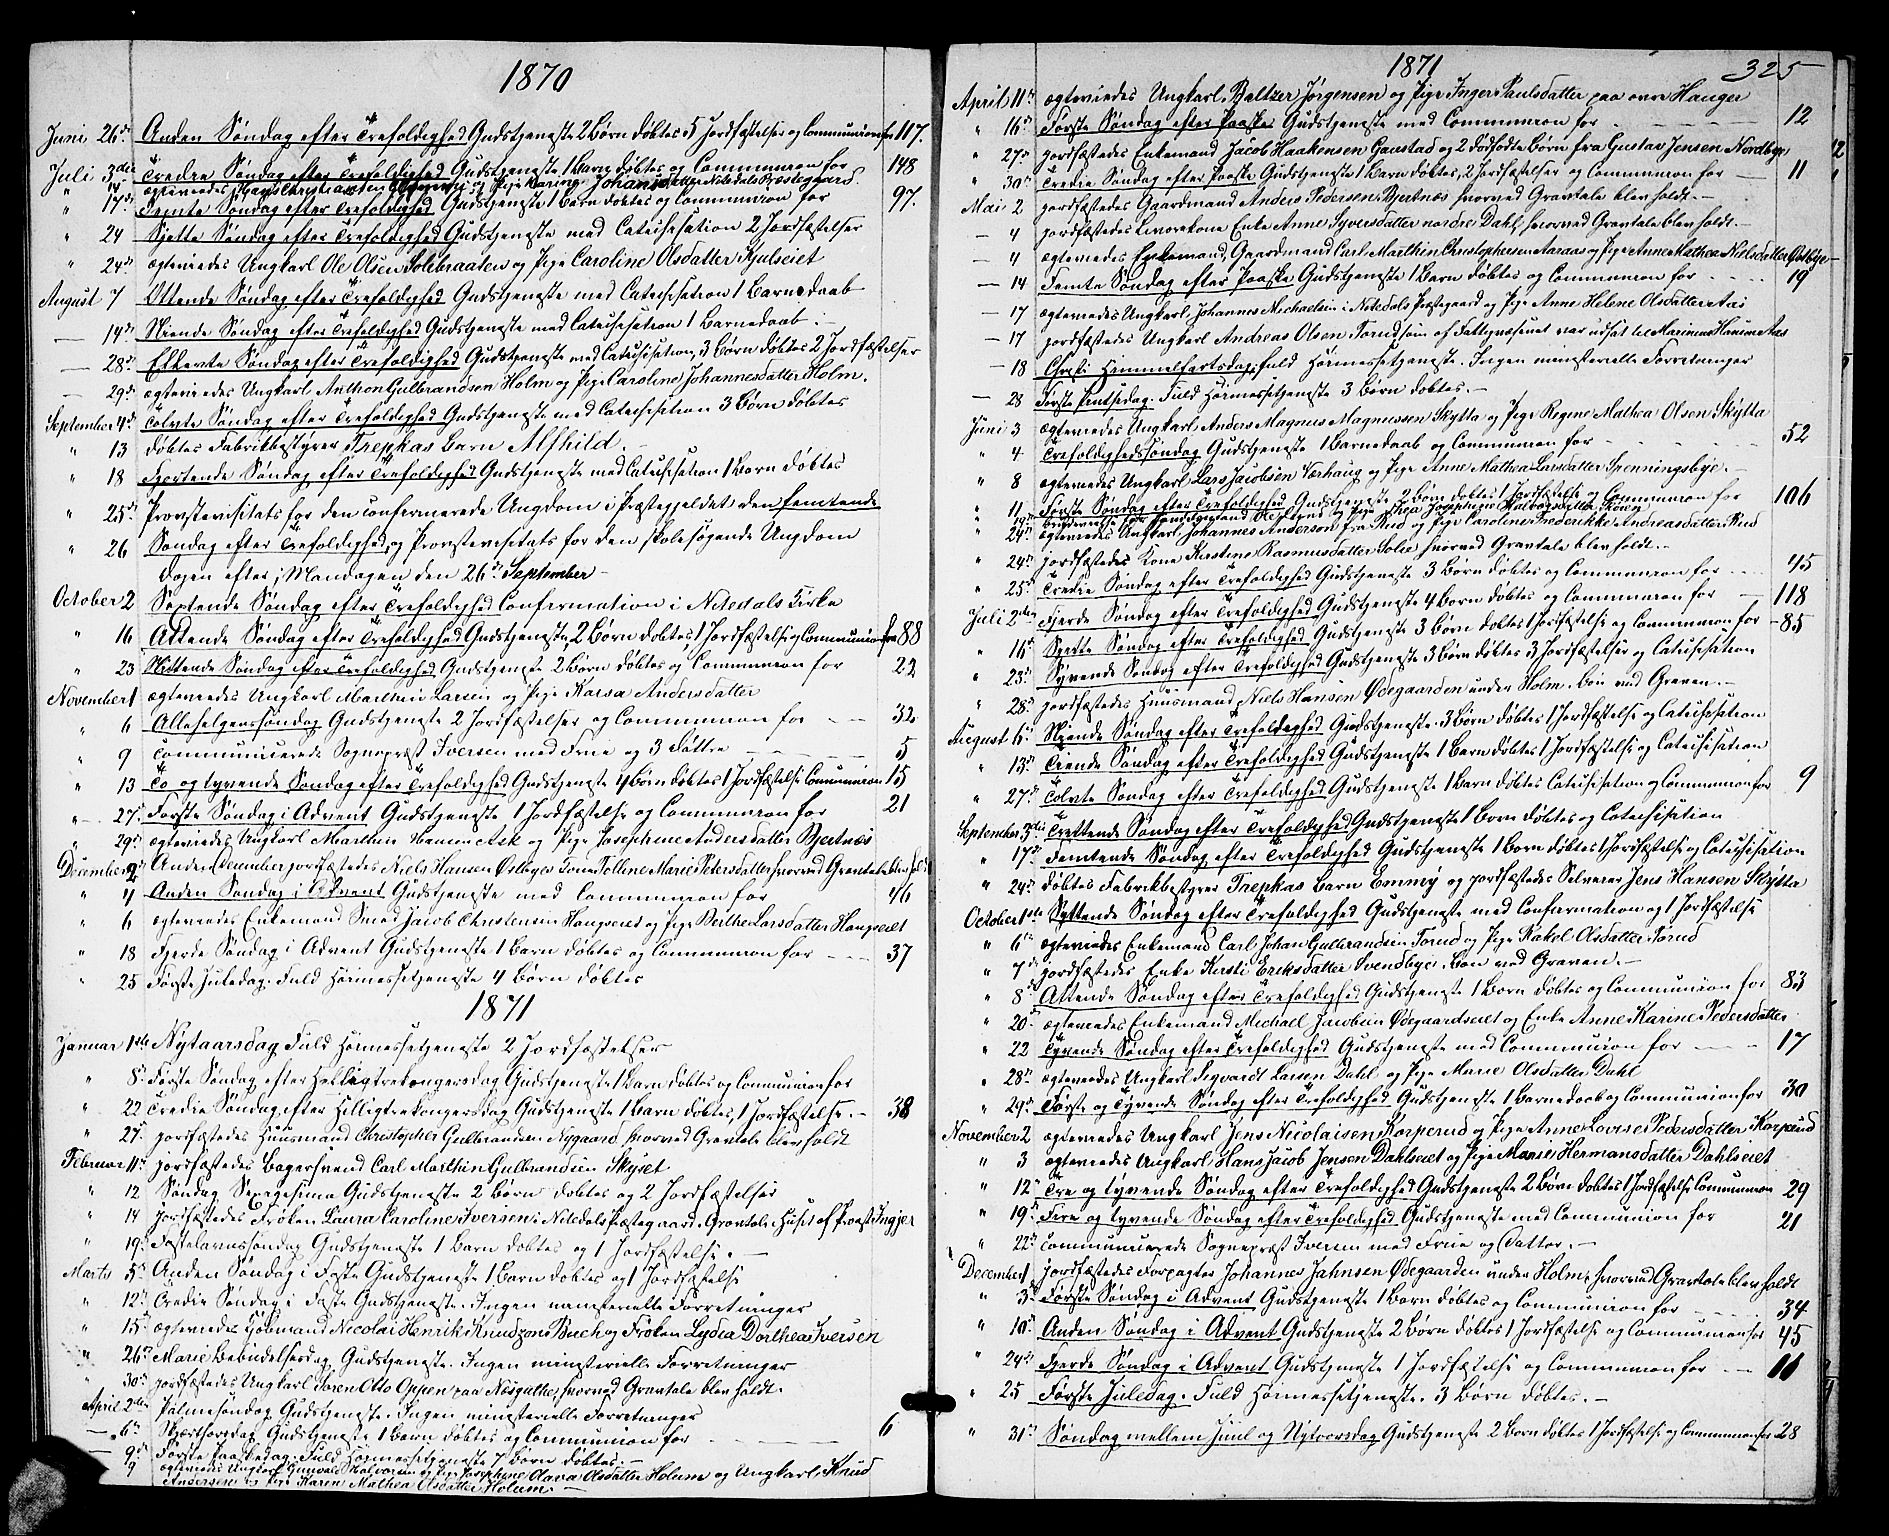 1870
Juni 26de Anden Søndag efter Trefoldighed Gudstjeneste 2 Børn døbtes 5 Jordfæstelser og Communion for 117.
Juli 3die Tredie Søndag efter Trefoldighed Gudstjeneste 1 Barn døbtes og Communion for 148
" 14 ægteviedes og Pige Karine Johannesdatter Nitedals Præstegaard
" 17de Femte Søndag efter Trefoldighed Gudstjeneste 1 Barn døbtes og Communion for 97.
" 24 Sjette Søndag efter Trefoldighed Gudstjeneste med Catechisation 2 Jordfæstelser
" 24de ægteviedes Ungkarl Ole Olsen Solebraaten og Pige Caroline Olsdatter Kjulseiet
August 7 Ottende Søndag efter Trefoldighed Gudstjeneste med Catechisation 1 Barnedaab
— 14de Niende Søndag efter Trefoldighed Gudstjeneste med Catechisation 1 Barnedaab. —
— 28de Ellevte Søndag efter Trefoldighed Gudstjeneste med Catechisation, 3 Børn døbtes 2 Jordfæstelser
— 29de ægteviedes Ungkarl Anthon Gulbrandsen Holm og Pige Caroline Johannesdatter Holm.
September 4de Tolvte Søndag efter Trefoldighed Gudstjeneste med Catechisation 3 Børn døbtes
" 13 døbtes Fabrikbestyrer Trepkas Barn Alfhild. —
" 18 Fjortende Søndag efter Trefoldighed Gudstjeneste med Catechisation 1 Barn døbtes
" 25de Provstevisitats for den confirmerede Ungdom i Præstegjeldet den femtende
" 26 Søndag efter Trefoldighed, og Provstevisitats for den skolesøgende Ungdom
Dagen efter, Mandagen den 26de September —
October 2 Sextende Søndag efter Trefoldighed Confirmation i Nitedals Kirke
" 16 Attende Søndag efter Trefoldighed Gudstjeneste, 2 Børn døbtes, 1 Jordfæstelse og Communion for 88
" 23 Nittende Søndag efter Trefoldighed Gudstjeneste 2 Børn døbtes og Communion for 22
November 1 ægteviedes Ungkarl Marthin Larsen og Pige Karsa Andersdatter
" 6 Allehelgenssøndag Gudstjeneste 2 Jordfæstelser og Communion for — — 32
" 9 communicerede Sognepræst Iversen med Frue og 3 Døttre — — 5
" 13 To og tyvende Søndag efter Trefoldighed Gudstjeneste 4 Børn døbtes 1 Jordfæstelse Communion 15
" 27. Første Søndag i Advent Gudstjeneste 1 Jordfæstelse og Communion for 21
" 29de ægteviedes Ungkarl Marthin Hansen Ask og Pige Josephine Andersdatter Bjertnæs
December 2 Anden December jordfæstedes Niels Hansen Østbyes Kone Tolline Marie Pedersdatter, hvorved Gravtale blev holdt
" 4 Anden Søndag i Advent Gudstjeneste med Communion for 46
" 6 ægteviedes Enkemand Smed Jacob Christensen Haugseiet og Pige Berthe Larsdatter Haugseiet
" 18 Fjerde Søndag i Advent Gudstjeneste 1 Barn døbtes og Communion for — — — 37
" 25 Første Juledag. Fuld Høimessetjeneste 4 Børn døbtes
1871
Januar 1ste Nytaarsdag Fuld Høimessetjeneste 2 Jordfæstelser
" 8de Første Søndag efter Helligtrekongersdag Gudstjeneste 1 Barn døbtes og Communion for
" 22 Tredie Søndag efter Helligtrekongersdag Gudstjeneste 1 Barn døbtes, 1 Jordfæstelse. — 38
" 27. jordfæstedes Huusmand Christopher Gulbrandsen Nygaard, hvorved Gravtale blev holdt
Februar 11te jordfæstedes Bagersvend Carl Marthin Gulbrandsen Skyset
" 12 Søndag Sexagesima Gudstjeneste 2 Børn døbtes og 2 Jordfæstelser
" 14 jordfæstedes Frøken Laura Caroline Iversen, Nitedals Præstegaard. Gravtale i Huset af Provst Ingier
" 19de Fastelavnssøndag Gudstjeneste 1 Barn døbtes og 1 Jordfæstelse. —
Marts 5te Anden Søndag i Faste Gudstjeneste 1 Barn døbtes og 1 Jordfæstelse
" 12te Tredie Søndag i Faste Gudstjeneste. Ingen ministerielle Forretninger
" 15de ægteviedes Kjøbmand Nicolai Henrik Knudzon Buch og Frøken Lydia Dorthea Iversen
" 26de Mariæ Bebudelsesdag Gudstjeneste. Ingen ministerielle Forretninger
" 30te jordfæstedes Ungkarl Søren Otto Oppen paa Nesguthe, hvorved Gravtale blev holdt.
April 2den Palmesøndag Gudstjeneste. Ingen ministerielle Forretninger
— 6te Skjærthorsdag Gudstjeneste 1 Barn døbtes og Communion for — — 6
— 9de Første Paaskedag, Fuld Høimessetjeneste 7 Børn døbtes. —
9 ægteviedes Ungkarl Gunvald Halvorsen og Pige Josephine Olava Olsdatter Holum og Ungkarl Knud
Andersen og Pige Karen Mathea Olsdatter Holum. —
1871
325
April 11te ægteviedes Ungkarl Baltzer Jørgensen og Pige Inger Paulsdatter paa øvre Hauger
" 16de Første Søndag efter Paaske Gudstjeneste med Communion for — — 12
" 27de jordfæstedes Enkemand Jacob Haakensen Gaustad og 2 dødfødte Børn fra Gustav Jensen Nordbye
" 30te Tredie Søndag efter Paaske Gudstjeneste 1 Barn døbtes, 2 Jordfæstelser og Communion for — 11
Mai 2 jordfæstedes Gaardmand Anders Pedersen Bjertnæs hvorved Gravtale blev holdt. —
— 4 jordfæstedes Livørekone Enke Anne Syversdatter nordre Dahl, hvorved Gravtale blev holdt. —
— 4 ægteviedes Enkemand, Gaardmand Carl Marthin Christophersen Aaraas og Pige Anne Mathea Nielsdatter Østbye —
— 14 Femte Søndag efter Paaske Gudstjeneste 1 Barn døbtes og Communion for — — 19
— 17 ægteviedes Ungkarl Johannes Michaelsen i Nitedals Præstegaard og Pige Anne Helene Olsdatter Aas
— 17 jordfæstedes Ungkarl Andreas Olsen Torud som af Fattigvæsenet var udsat til Marinus Hansen Aas
— 18 Christi Himmelfartsdag, fuld Høimessetjeneste. Ingen ministerielle Forretninger
— 28 Første Pintsedag. Fuld Høimessetjeneste 3 Børn døbtes. —
Juni 3 ægteviedes Ungkarl Anders Magnus Magnussen Skytta og Pige Regine Mathea Olsen Skytta
" 4 Trefoldighedssøndag Gudstjeneste 1 Barnedaab og Communion for — — 52
" 8 ægteviedes Ungkarl Lars Jacobsen Værhaug og Pige Anne Mathea Larsdatter Spenningsbye. —
" 11 Første Søndag efter Trefoldighed Gudstjeneste 2 Børn døbtes 1 Jordfæstelse og Communion for 106
" og Pige Thea Josephine Halvorsdatter
" 24de ægteviedes Ungkarl Johannes Andersen fra Rud og Pige Caroline Frederikke Andreasdatter Rud
" 24de jordfæstedes Kone Kirstine Rasmusdatter Solie hvorved Gravtale blev holdt. —
" 25de Tredie Søndag efter Trefoldighed Gudstjeneste 3 Børn døbtes og Communion for — 45
Juli 2den Fjerde Søndag efter Trefoldighed Gudstjeneste 4 Børn døbtes og Communion for — 118
" 16de Sjette Søndag efter Trefoldighed Gudstjeneste 3 Børn døbtes 1 Jordfæstelse og Communion for — 85
" 23de Syvende Søndag efter Trefoldighed Gudstjeneste 3 Børn døbtes 3 Jordfæstelser og Catechisation
" 28de jordfæstedes Huusmand Niels Hansen Ødegaarden under Holm. Bøn ved Graven. —
August 6te Niende Søndag efter Trefoldighed Gudstjeneste. 3 Børn døbtes 1 Jordfæstelse og Catechisation
" 13de Tiende Søndag efter Trefoldighed Gudstjeneste 1 Barn døbtes 1 Jordfæstelse og Catechisation
" 27de Tolvte Søndag efter Trefoldighed Gudstjeneste 1 Barn døbtes Catechisation og Communion for 9
September 3die Trettende Søndag efter Trefoldighed Gudstjeneste 1 Barn døbtes og Catechisation
" 17de Femtende Søndag efter Trefoldighed Gudstjeneste 1 Barn døbtes 1 Jordfæstelse og Catechisation
" 24de døbtes Fabrikbestyrer Trepkas Barn Emmy og jordfæstedes Selveier Jens Hansen Skytta
October 1ste Syttende Søndag efter Trefoldighed Gudstjeneste med Confirmation og 1 Jordfæstelse
" 6te ægteviedes Enkemand Carl Johan Gulbrandsen Torud og Pige Rakel Olsdatter Torud
" 7de jordfæstedes Enke Kirsti Eriksdatter Svendbye. Bøn ved Graven. —
" 8de Attende Søndag efter Trefoldighed Gudstjeneste 1 Barn døbtes og Communion for 83
" 20de ægteviedes Enkemand Michael Jacobsen Ødegaardseiet og Enke Anne Karine Pedersdatter
" 22 Tyvende Søndag efter Trefoldighed Gudstjeneste med Communion for — — 17
" 28de ægteviedes Ungkarl Sigvardt Larsen Dahl og Pige Marie Olsdatter Dahl
" 29de Første og Tyvende Søndag efter Trefoldighed Gudstjeneste 1 Barnedaab og Communion for 30
November 2 ægteviedes Ungkarl Jens Nicolaisen Korperud og Pige Anne Lovise Pedersdatter Korperud
" 3 ægteviedes Ungkarl Hans Jacob Jensen Dahlseiet og Pige Marie Hermansdatter Dahlseiet
" 12te Tre og tyvende Søndag efter Trefoldighed Gudstjeneste 2 Børn døbtes 1 Jordfæstelse Communion 29
" 19de Fire og tyvende Søndag efter Trefoldighed Gudstjeneste med Communion for 21
" 22de communicerede Sognepræst Iversen med Frue og Datter. —
December 1 jordfæstedes Forpagter Johannes Jahnsen Ødegaarden under Holm, hvorved Gravtale blev holdt
" 3de Første Søndag i Advent Gudstjeneste 1 Barn døbtes og Communion for — — 34
" 10de Anden Søndag i Advent Gudstjeneste 2 Børn døbtes 1 Jordfæstelse og Communion for 45
" 24de Fjerde Søndag i Advent Gudstjeneste 1 Jordfæstelse og Communion for — — 11
" 25 Første Juledag. Fuld Høimessetjeneste. 3 Børn døbtes. —
" 31te Søndag mellem Juul og Nytaarsdag Gudstjeneste 2 Børn døbtes 1 Jordfæstelse og Communion for 28